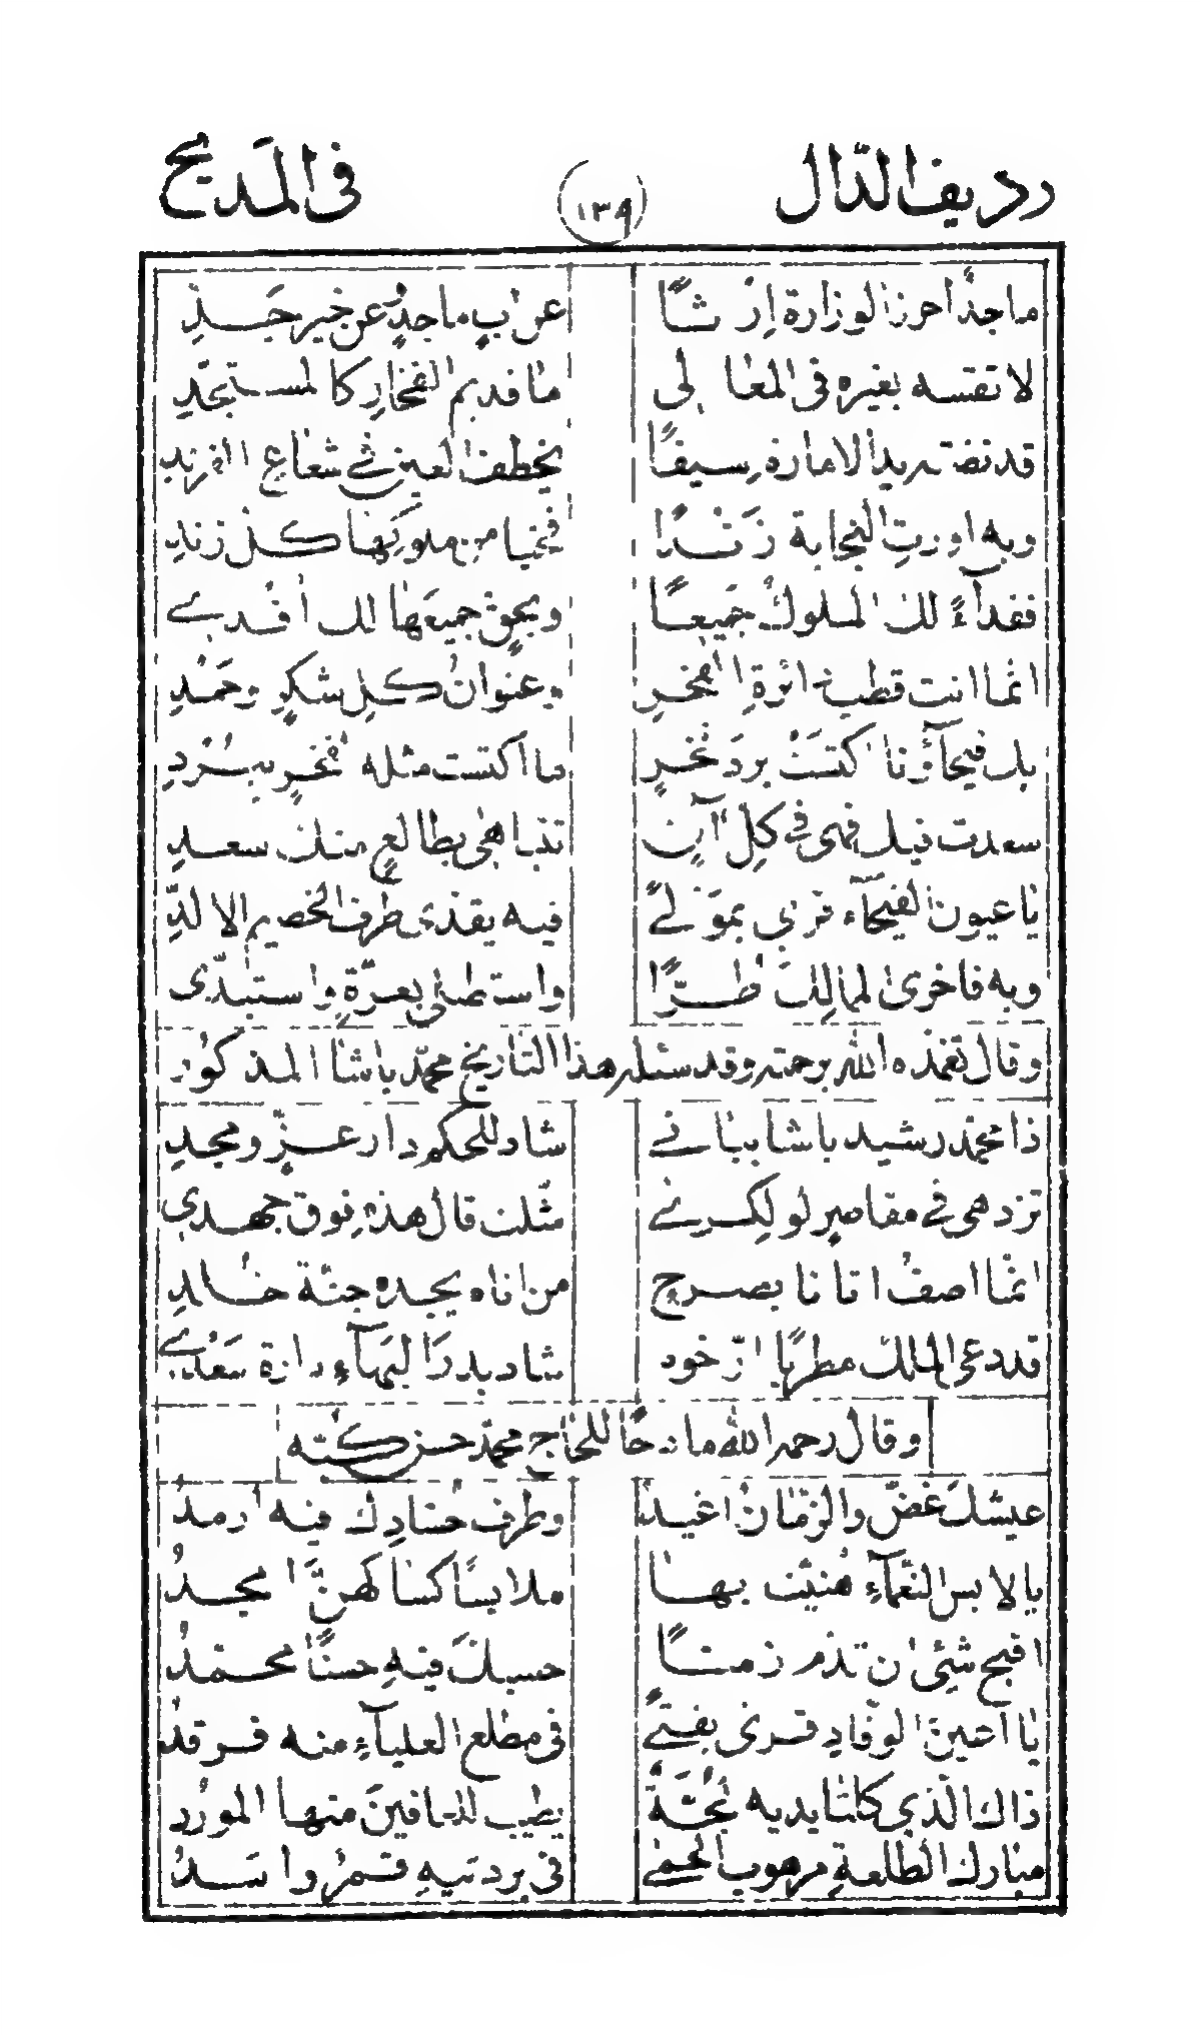 رديف الدال ١٣٩ في المديح
ماجدًا احرز الوزارة ارثًا عن ابٍ ماجدٍ عن خير جدِّ
لا تقسه بغيره في المعالي ما قديم الفخار كالمستجدِّ
قد نضته يد الامارة سيفًا يخطف العين في شعاع الفرند
وبه اورت النجابة زندًا فخبا من ملوكها كل زند
ففداءً لك الملوك جميعًا وبحقٍ جميعها لك افدي
انما انت قطب دائرة الفخر وعنوان كل شكرٍ وحمدِ
بك فيحاؤنا اكتست برد فخرٍ ما اكتست مثله لفخرٍ ببردِ
سعدت فيك فهي في كل آنٍ تتباهى بطالعٍ منك سعدِ
يا عيون الفيحاء قري بمولى فيه يقذى طرف الخصيم الالدِّ
وبه فاخري الممالك طرًّا واستطيلي بعزةٍ واستبدّي
وقال تغمده الله برحمته وقد سئله هذا التاريخ محمد باشا المذكور
ذا محمد رشيد باشا بباني شاد للحكم دار عزٍّ ومجدِ
تزدهي في مقاصرٍ لو لكسرى مثّلت قال هذه فوق جهدي
انما اصف اتانا بصرح من اتاه يجده جنة خلدِ
قد دعى الملك مطربًا ارّخوه شاد بدر البهاء دارة سعدي
وقال رحمه الله مادحًا للحاج محمد حسن كبّه
عيشك غضٌّ والزمان اغيد وطرف حسادك فيه ارمدُ
يا لابس النعماء هنيت بها ملابسًا كساكهنّ المجدُ
اقبح شيئ ان تذم زمنًا حسبك فيه حسنًا محمدُ
يا اعين الوفاد قري بفتى في مطلع العلياء منه فرقدُ
ذاك الذي كلتا يديه لجّةٌ يطيب للعافين منها الموردُ
مبارك الطلعة مرهوب الحمى في بردتيه قمرٌ واسدُ